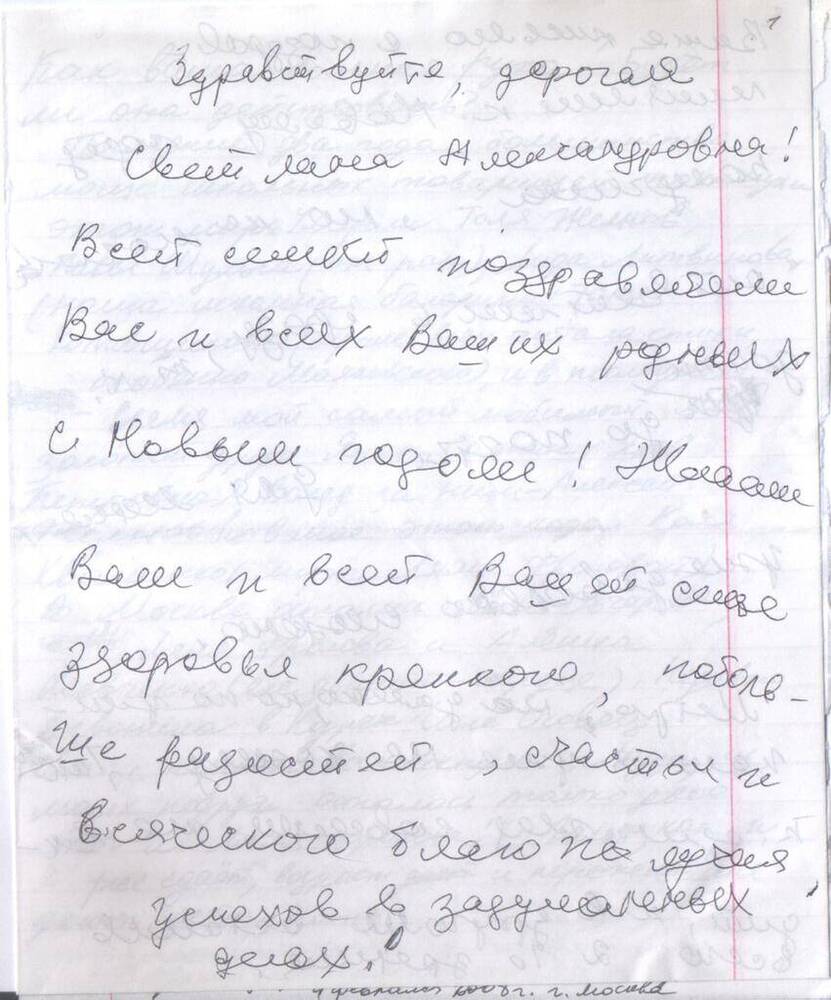 1
Здравствуйте, дорогая
Светлана Александровна!
Всей семьёй поздравляем
Вас и всех Ваших родных
С Новым годом! Желаем
Вам и всей Вашей семье
здоровья крепкого, поболь-
ше радостей, счастья и
всяческого благополучия,
успехов в задуманных
делах!
г. Москва